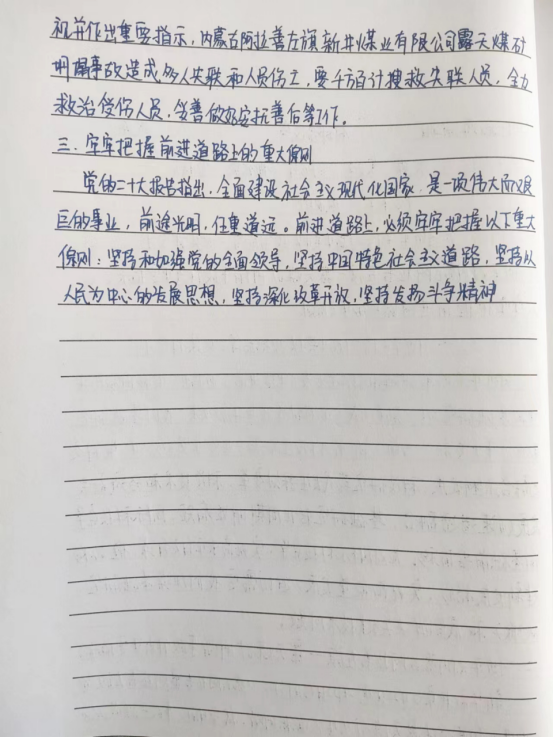 视并作出重要指示，内蒙古阿拉善左旗新井煤业有限公司露天煤矿
坍塌事故造成多人失联和人员伤亡，要千方百计搜救失联人员，全力
救治受伤人员，妥善做好安抚善后等工作。
三、牢牢把握前进道路上的重大原则
党的二十大报告指出，全面建设社会主义现代化国家，是一项伟大而艰
巨的事业，前途光明，任重道远。前进道路上，必须牢牢把握以下重大
原则：坚持和加强党的全面领导，坚持中国特色社会主义道路，坚持以
人民为中心的发展思想，坚持深化改革开放，坚持发扬斗争精神